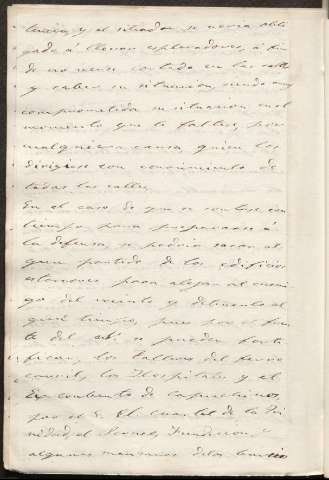 y el sitiador se veria obli
gado á llevar esploradores, á fin
de no verse cortado en las calles
y saber su situacion, siendo muy
comprometida su situacion en el
momento que le falte, por
cualquiera causa quien los
dirigiese con conocimiento de
todas las calles.
En el caso de que se contase con
tiempo para prepararse á
la defensa, se podria sacar al
gun partido de los edificios
esteriores para alejar al enemi
go del recinto y detenerlo al
gun tiempo, pues por el fren
te del se pueden forti
ficar, los talleres del ferro
carril, los Hospitales y el
Ex convento de Capuchinos
por el E. El Cuartel de la Tri
nidad, el Fundicion, y
algunas manzanas de los barrios